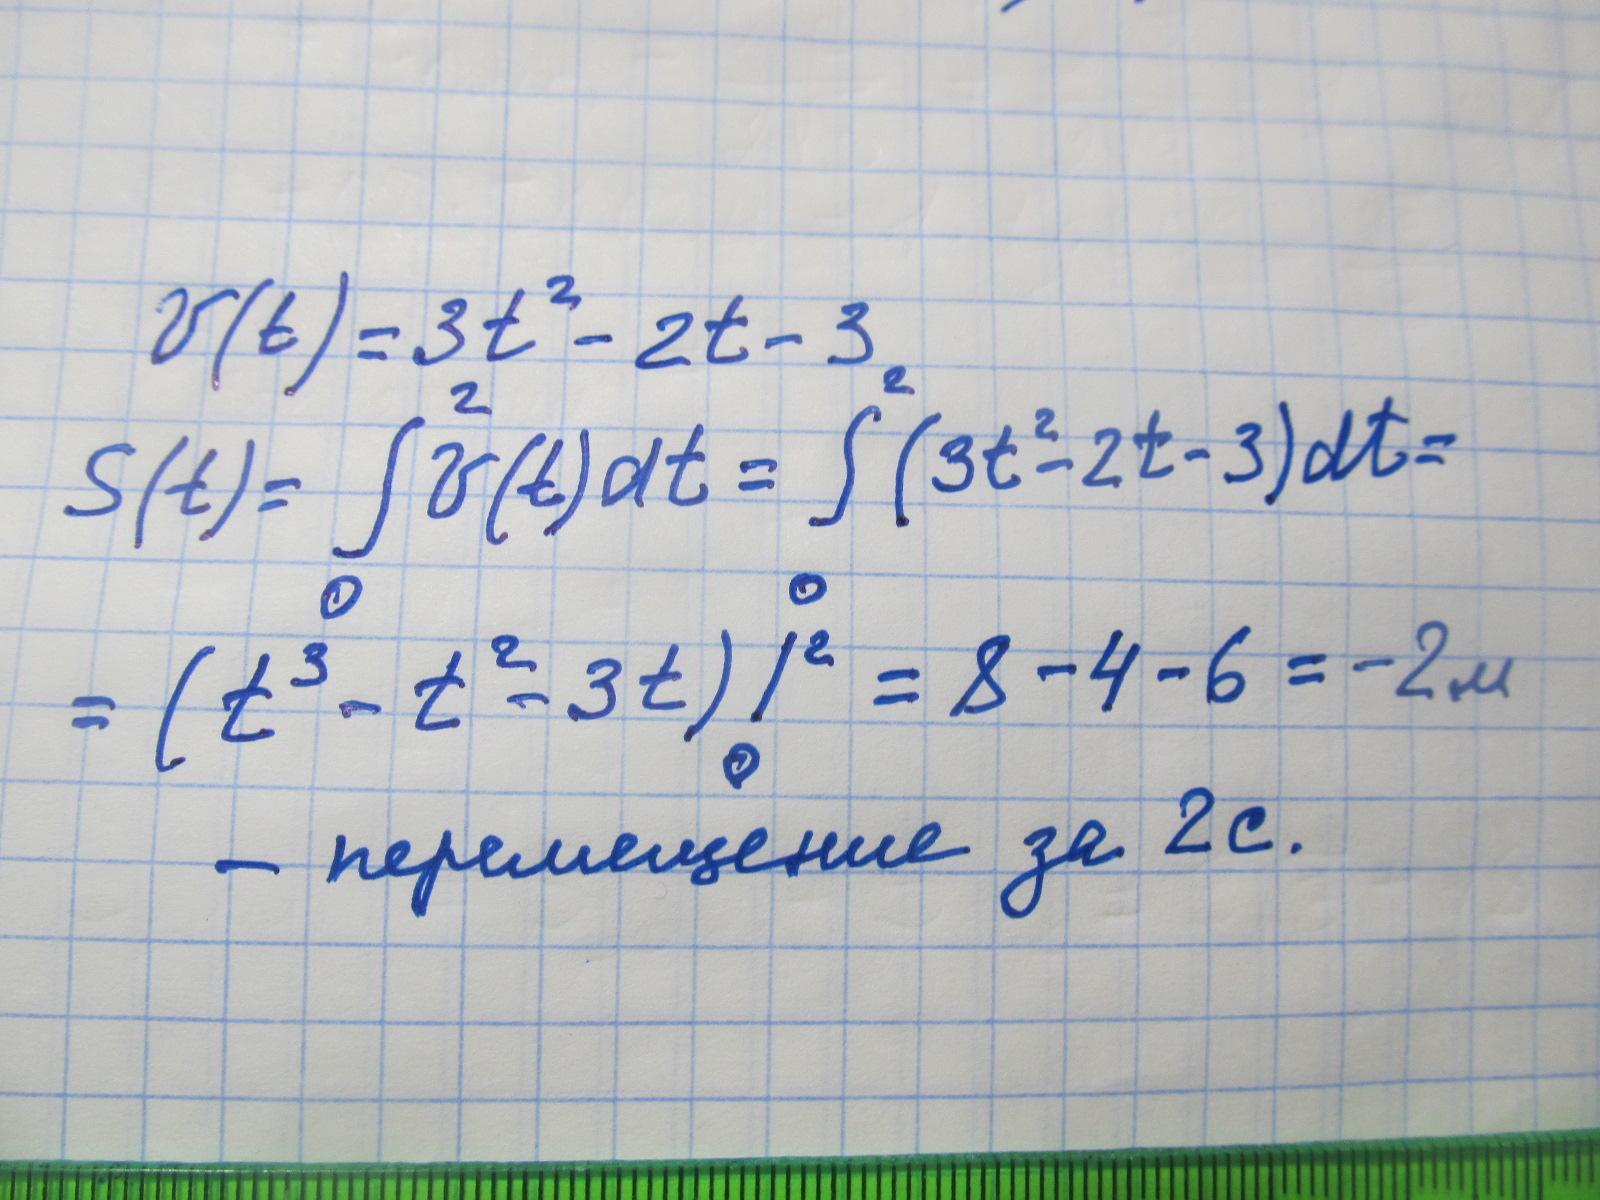 v(t) = 3t² - 2t - 3
S(t) = ∫₀² v(t)dt = ∫₀² (3t² - 2t - 3)dt =
= (t³ - t² - 3t) |₀² = 8 - 4 - 6 = -2м
- перемещение за 2с.